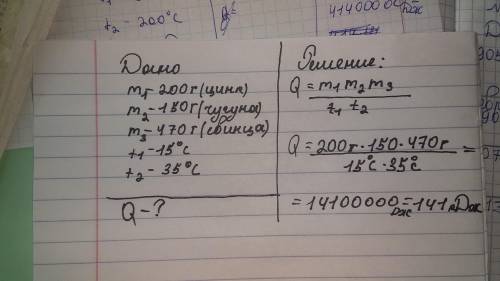 t₂ - 200°C
4140000 Дж
Дано
m₁ - 200г (цинк)
m₂ - 150г (чугуна)
m₃ - 470г (свинца)
t₁ - 15°C
t₂ - 35°C
Q - ?
Решение:
Q = m₁ m₂ m₃ / t₁ t₂
Q = 200г · 150 · 470г / 15°C · 35°C =
= 14100000 Дж = 141 кДж